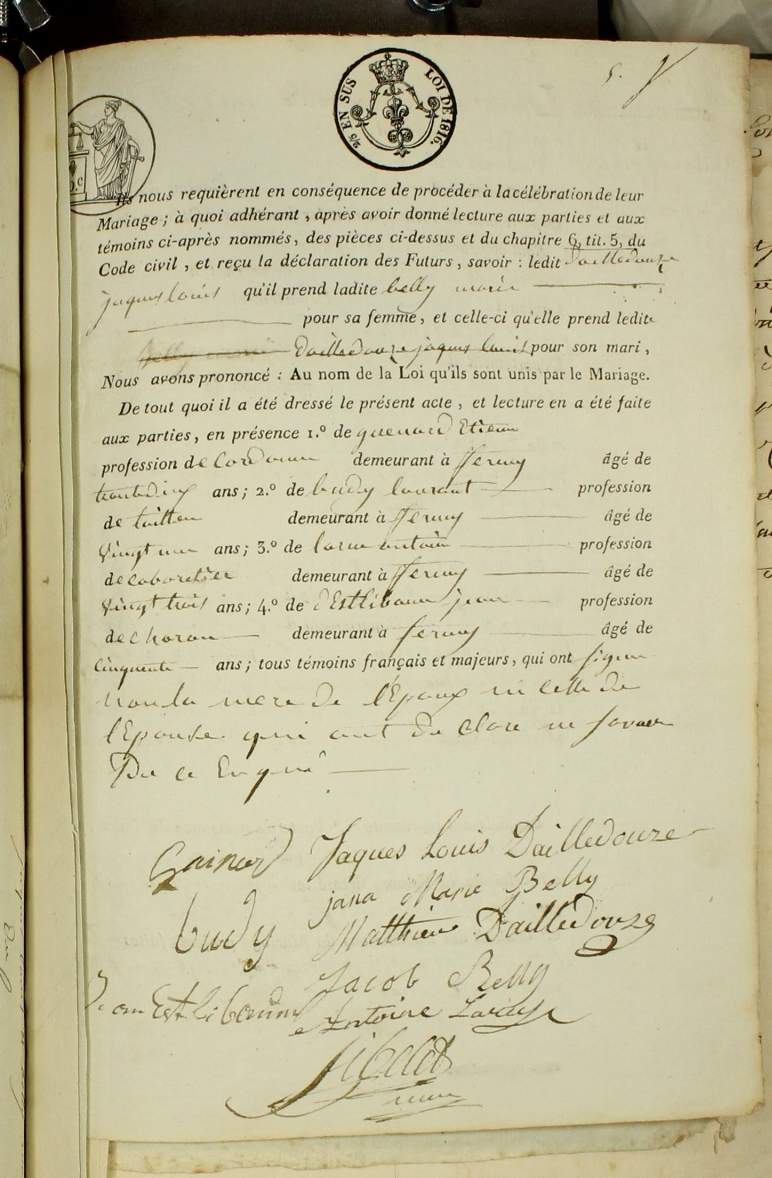 5.
25 EN SUS LOI DE 1816.
Ils nous requièrent en conséquence de procéder à la célébration de leur
Mariage ; à quoi adhérant , après avoir donné lecture aux parties et aux
témoins ci-après nommés, des pièces ci-dessus et du chapitre 6, tit. 5, du
Code civil , et reçu la déclaration des Futurs , savoir : ledit Dailledouze
jaques louis qu'il prend ladite belly marie
pour sa femme, et celle-ci qu'elle prend ledit
Dailledouze jaques louis pour son mari ,
Nous avons prononcé : Au nom de la Loi qu'ils sont unis par le Mariage.
De tout quoi il a été dressé le présent acte , et lecture en a été faite
aux parties, en présence 1.º de Etienne
profession de demeurant à ferney âgé de
ans ; 2.º de budy laurant profession
de demeurant à ferney âgé de
vingt ans ; 3.º de antoine profession
de demeurant à ferney âgé de
vingt trois ans ; 4.º de jean profession
de demeurant à ferney âgé de
cinquante ans ; tous témoins français et majeurs, qui ont signé
non la mere de l'Epoux ni celle de
l'Epouse qui ont de clare ne savoir
De ce Enquis
Gainard Jaques Louis Dailledouze
jana Marie Belly
budy Matthieu Dailledouze
Jacob Belly
Antoine